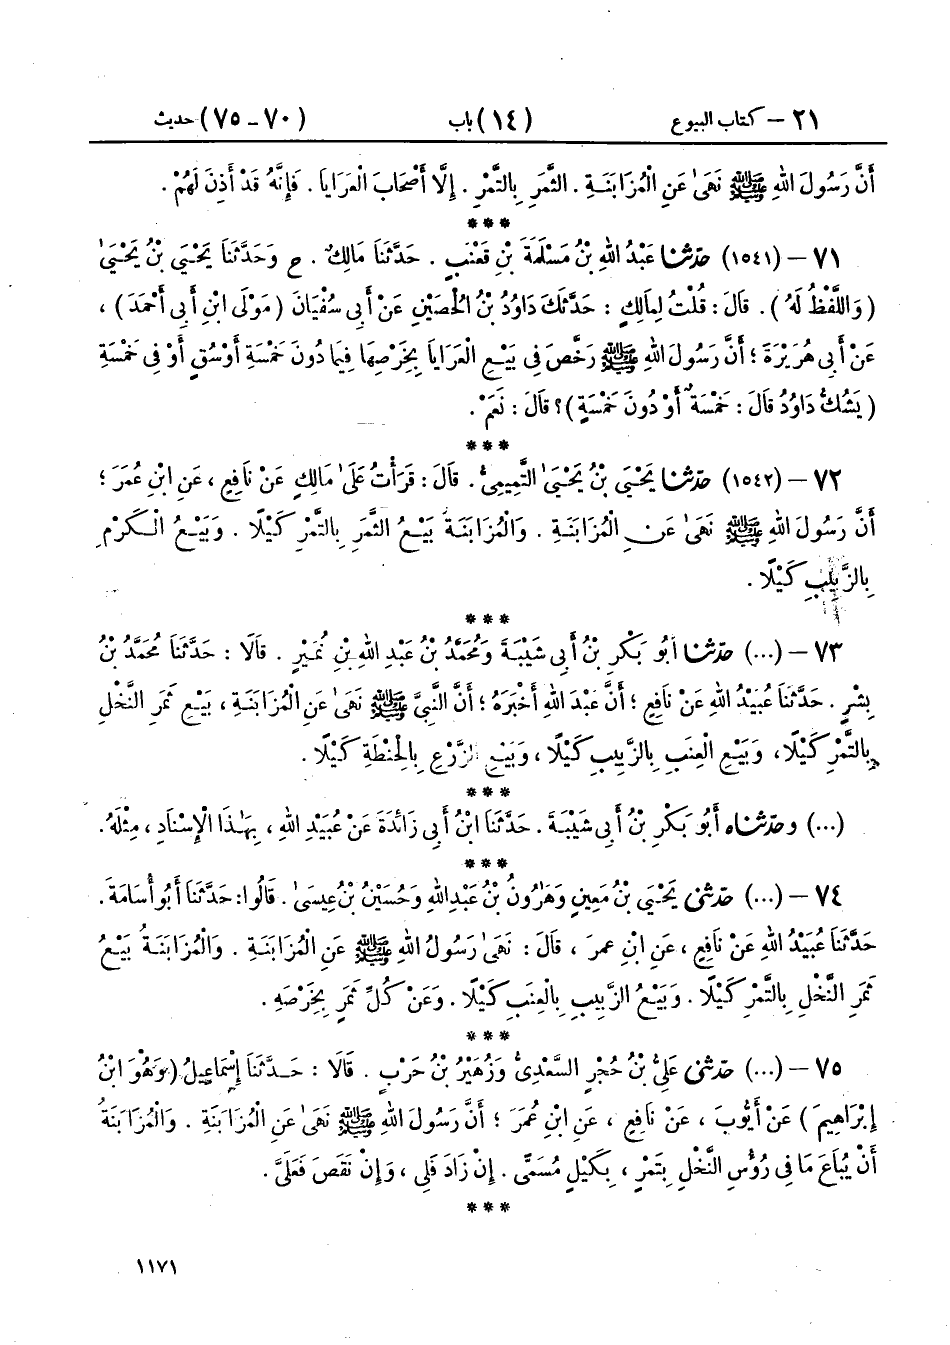 ٢١ – كتاب البيوع (١٤) باب (٧٠ – ٧٥) حديث
أَنَّ رَسُولَ اللهِ ﷺ نَهَىٰ عَنِ الْمُزَابَنَةِ . الثَّمَرِ بِالتَّمْرِ . إِلَّا أَصْحَابَ الْعَرَايَا . فَإِنَّهُ قَدْ أَذِنَ لَهُمْ .
***
٧١ – (١٥٤١) حدّثنا عَبْدُ اللهِ بْنُ مَسْلَمَةَ بْنِ قَعْنَبٍ . حَدَّثَنَا مَالِكٌ . ح وَحَدَّثَنَا يَحْيَىٰ بْنُ يَحْيَىٰ
( وَاللَّفْظُ لَهُ ) . قَالَ : قُلْتُ لِمَالِكٍ : حَدَّثَكَ دَاوُدُ بْنُ الْحُصَيْنِ عَنْ أَبِي سُفْيَانَ ( مَوْلَى ابْنِ أَبِي أَحْمَدَ ) ،
عَنْ أَبِي هُرَيْرَةَ ؛ أَنَّ رَسُولَ اللهِ ﷺ رَخَّصَ فِي بَيْعِ الْعَرَايَا بِخَرْصِهَا فِيمَا دُونَ خَمْسَةِ أَوْسُقٍ أَوْ فِي خَمْسَةِ
( يَشُكُّ دَاوُدُ قَالَ : خَمْسَةٌ أَوْ دُونَ خَمْسَةٍ ) ؟ قَالَ : نَعَمْ .
***
٧٢ – (١٥٤٢) حدّثنا يَحْيَىٰ بْنُ يَحْيَىٰ التَّمِيمِيُّ . قَالَ : قَرَأْتُ عَلَىٰ مَالِكٍ عَنْ نَافِعٍ ، عَنِ ابْنِ عُمَرَ ؛
أَنَّ رَسُولَ اللهِ ﷺ نَهَىٰ عَنِ الْمُزَابَنَةِ . وَالْمُزَابَنَةُ بَيْعُ الثَّمَرِ بِالتَّمْرِ كَيْلًا . وَبَيْعُ الْكَرْمِ
بِالزَّبِيبِ كَيْلًا .
***
٧٣ – (...) حدّثنا أَبُو بَكْرِ بْنُ أَبِي شَيْبَةَ وَمُحَمَّدُ بْنُ عَبْدِ اللهِ بْنِ نُمَيْرٍ . قَالَا : حَدَّثَنَا مُحَمَّدُ بْنُ
بِشْرٍ . حَدَّثَنَا عُبَيْدُ اللهِ عَنْ نَافِعٍ ؛ أَنَّ عَبْدَ اللهِ أَخْبَرَهُ ؛ أَنَّ النَّبِيَّ ﷺ نَهَىٰ عَنِ الْمُزَابَنَةِ ، بَيْعِ ثَمَرِ النَّخْلِ
بِالتَّمْرِ كَيْلًا ، وَبَيْعِ الْعِنَبِ بِالزَّبِيبِ كَيْلًا ، وَبَيْعِ الزَّرْعِ بِالْحِنْطَةِ كَيْلًا .
***
(...) وحدّثناه أَبُو بَكْرِ بْنُ أَبِي شَيْبَةَ . حَدَّثَنَا ابْنُ أَبِي زَائِدَةَ عَنْ عُبَيْدِ اللهِ ، بِهَٰذَا الْإِسْنَادِ ، مِثْلَهُ .
***
٧٤ – (...) حدّثني يَحْيَىٰ بْنُ مَعِينٍ وَهَٰرُونُ بْنُ عَبْدِ اللهِ وَحُسَيْنُ بْنُ عِيسَىٰ . قَالُوا : حَدَّثَنَا أَبُو أُسَامَةَ .
حَدَّثَنَا عُبَيْدُ اللهِ عَنْ نَافِعٍ ، عَنِ ابْنِ عُمَرَ ، قَالَ : نَهَىٰ رَسُولُ اللهِ ﷺ عَنِ الْمُزَابَنَةِ . وَالْمُزَابَنَةُ بَيْعُ
ثَمَرِ النَّخْلِ بِالتَّمْرِ كَيْلًا . وَبَيْعُ الزَّبِيبِ بِالْعِنَبِ كَيْلًا . وَعَنْ كُلِّ ثَمَرٍ بِخَرْصِهِ .
***
٧٥ – (...) حدّثني عَلِيُّ بْنُ حُجْرٍ السَّعْدِيُّ وَزُهَيْرُ بْنُ حَرْبٍ . قَالَا : حَدَّثَنَا إِسْمَاعِيلُ ( وَهُوَ ابْنُ
إِبْرَاهِيمَ ) عَنْ أَيُّوبَ ، عَنْ نَافِعٍ ، عَنِ ابْنِ عُمَرَ ؛ أَنَّ رَسُولَ اللهِ ﷺ نَهَىٰ عَنِ الْمُزَابَنَةِ . وَالْمُزَابَنَةُ
أَنْ يُبَاعَ مَا فِي رُؤُسِ النَّخْلِ بِتَمْرٍ ، بِكَيْلٍ مُسَمًّى . إِنْ زَادَ فَلِي ، وَإِنْ نَقَصَ فَعَلَيَّ .
***
١١٧١